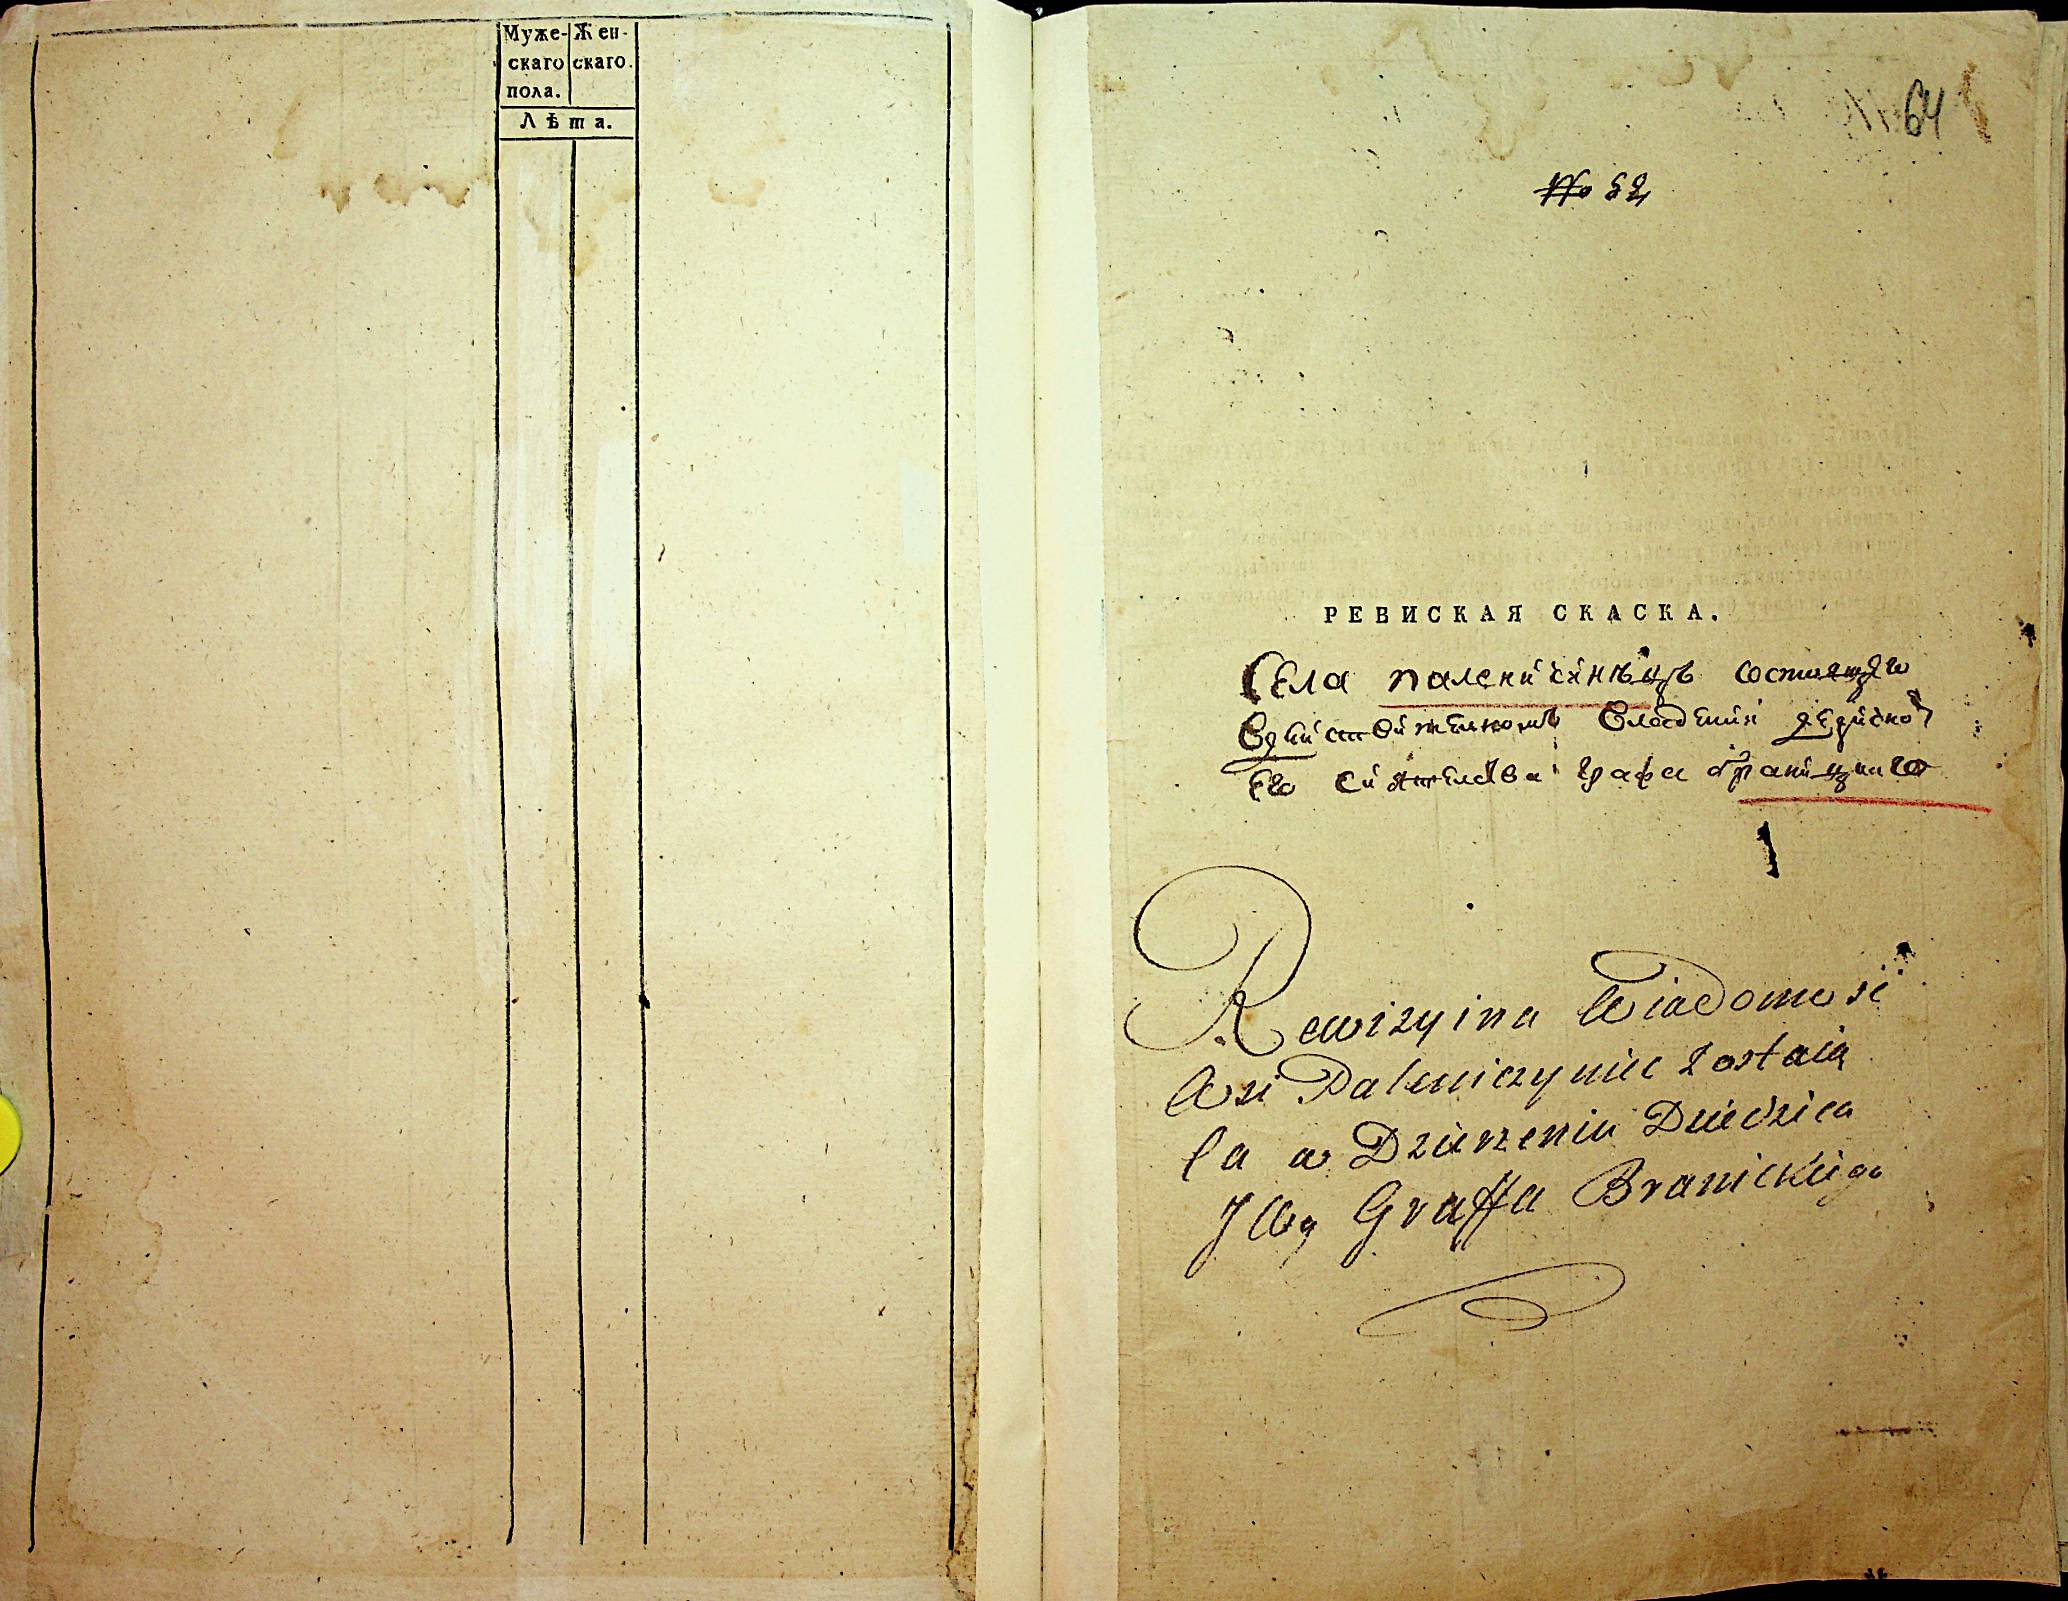 Муже- Жен-
скаго скаго.
пола.
Лѣта.
64
№ 52
РЕВИСКАЯ СКАСКА.
Села паленичинѣцъ состоящаго
владении
Его Сиятелства Графа браницкого
Rewizyina Wiadomosi
Wsi Paleniczyniec zostaią
ca w Dziedzica
JW Graffa Branickiego